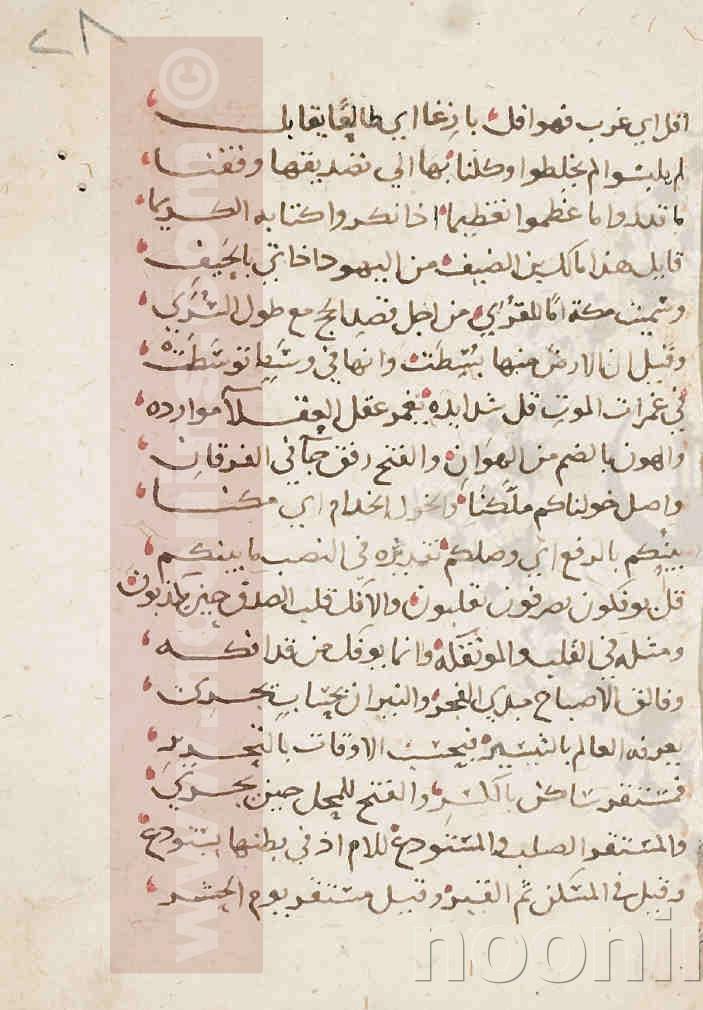 ٢٨
افل اي غرب فهو افل بازغا اي طالعا يقابل
لم يلبسوا لم يخلطوا وكلنا بها الي تصديقها وفقنا
ما قدروا ما عظموا تعظيما اذ انكروا كتابه الكريما
قايل هذا مالك بن الضيف من اليهود اذ اتي بالحيف
وسميت مكة ام القري من اجل فضل الحج مع طول السري
وقيل ان الارض منها بسطت وانها في وسط توسطت
في غمرات الموت قل شدايده يغمر عقل العقلا موارده
والهون بالضم من الهوان والفتح رفق جا في الفرقان
واصل خولناكم ملكنا والخول الخدام اي مكنا
بينكم بالرفع اي وصلكم تقديره في النصب ما بينكم
قل يوفكون يصرفون تقلبون والافك قلب الصدق حين يكذبون
ومثله في القلب والموتفكه وانما يوفك من قد افكه
وفالق الاصباح مبدي الفجر والنيران بحساب تجري
يعرفه العالم بالتيسير فيحسب الاوقات بالتحرير
فمستقر ساكن بالكسر والفتح للمحل حين يجري
والمستقر الصلب والمستودع للام اذ في بطنها يستودع
وقيل في المسكن ثم القبر وقيل مستقر يوم الحشر
www.noonins.com ©
noonin